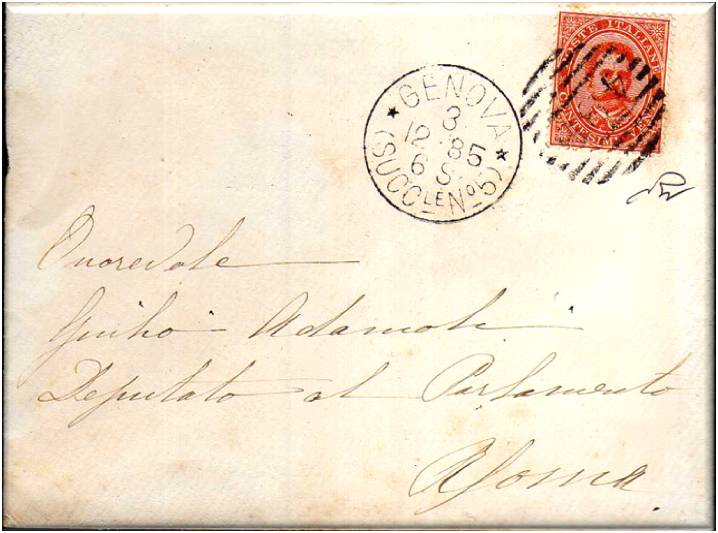 GENOVA
3
12 85
6 S
(SUCCLE No 5)
POSTE ITALIANE
CENTESIMI VENTI
Onorevole
Giulio Adamoli
Deputato al Parlamento
Roma